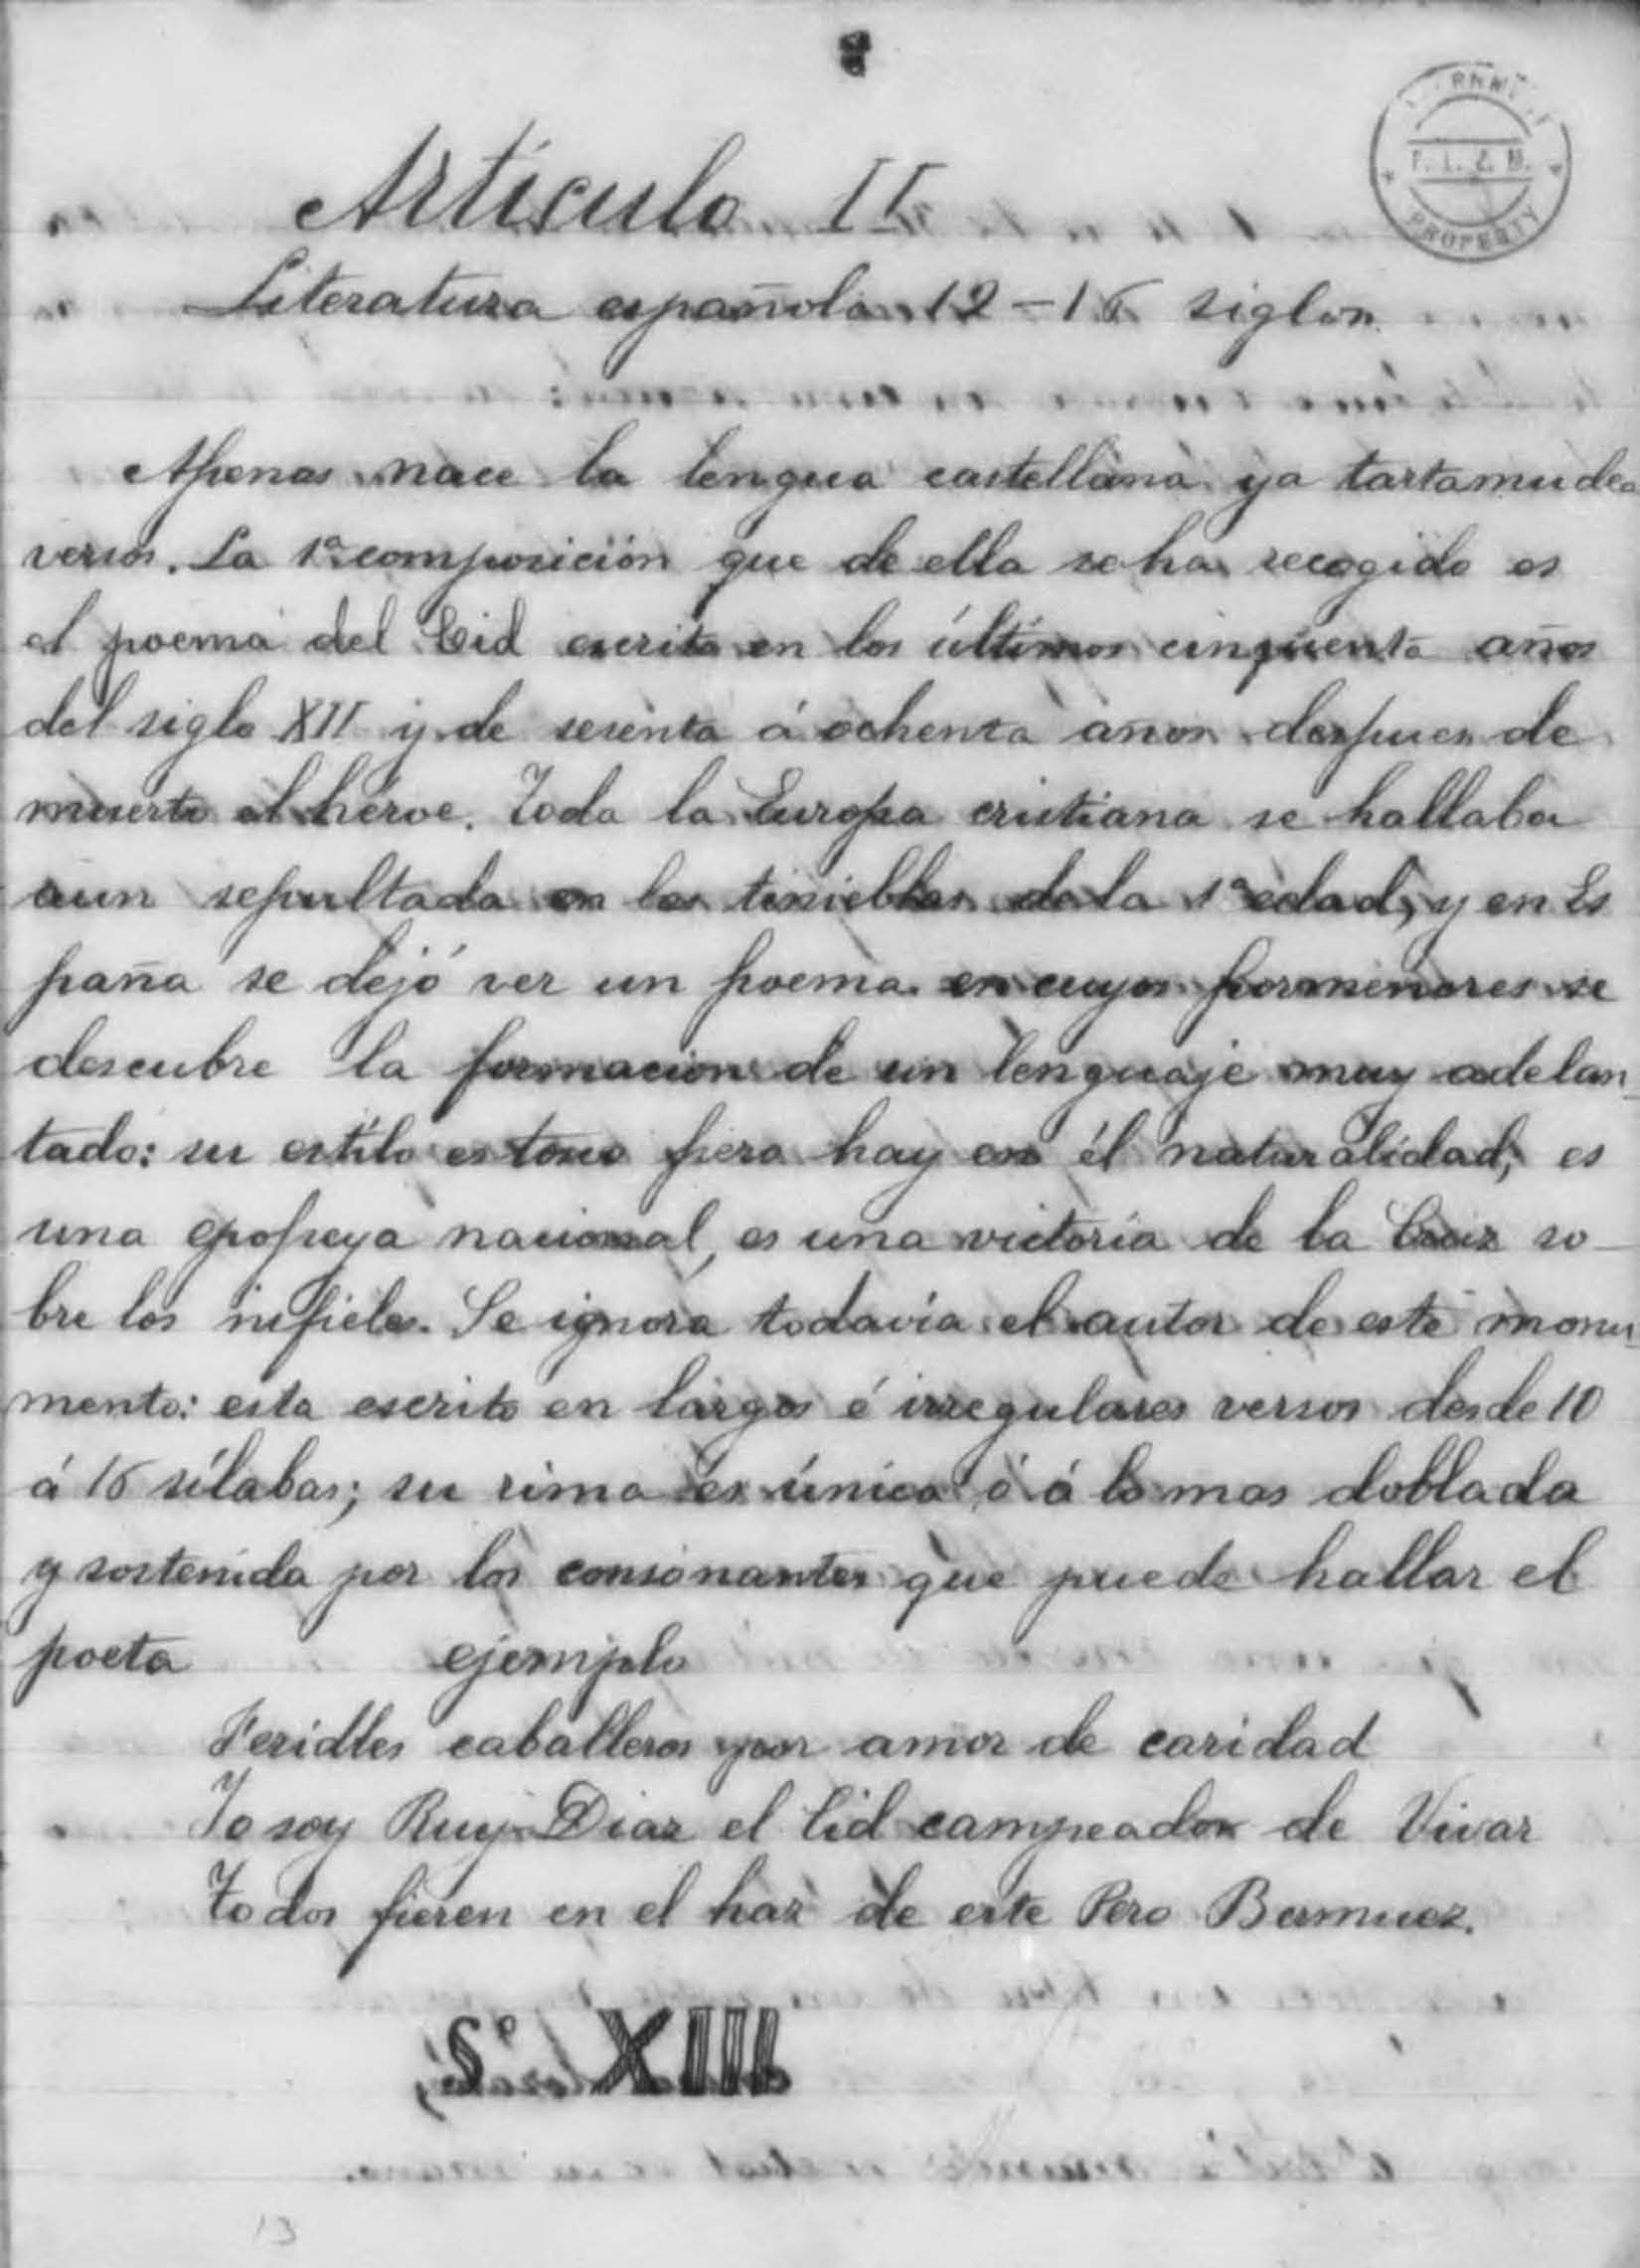 Artículo II
Literatura española 12-15 siglos
Apenas nace la lengua castellana ya tartamudea
versos. La 1ª composición que de ella se ha recogido es
el poema del Cid escrito en los últimos cinquenta años
del siglo XII y de sesenta á ochenta años despues de
muerto el héroe. Toda la Europa cristiana se hallaba
aun sepultada en las tinieblas de la 1ª edad, y en Es
paña se dejó ver un poema en cuyos pormenores se
descubre la formacion de un lenguaje muy adelan_
tado: su estilo es tosco pero hay en él naturalidad; es
una epopeya nacional, es una victoria de la Cruz so_
bre los infieles. Se ignora todavia el autor de este monu_
mento: esta escrito en largos é irregulares versos desde 10
á 16 sílabas; su rima es única ó á lo mas doblada
y sostenida por los consonantes que puede hallar el
poeta ejemplo
Feridles caballeros por amor de caridad
Yo soy Ruy Diaz el Cid campeador de Vivar
Todos fieren en el haz de este Pero Bermuez.
Sº XIII
13
F. L. Z. N.
PROPERTY